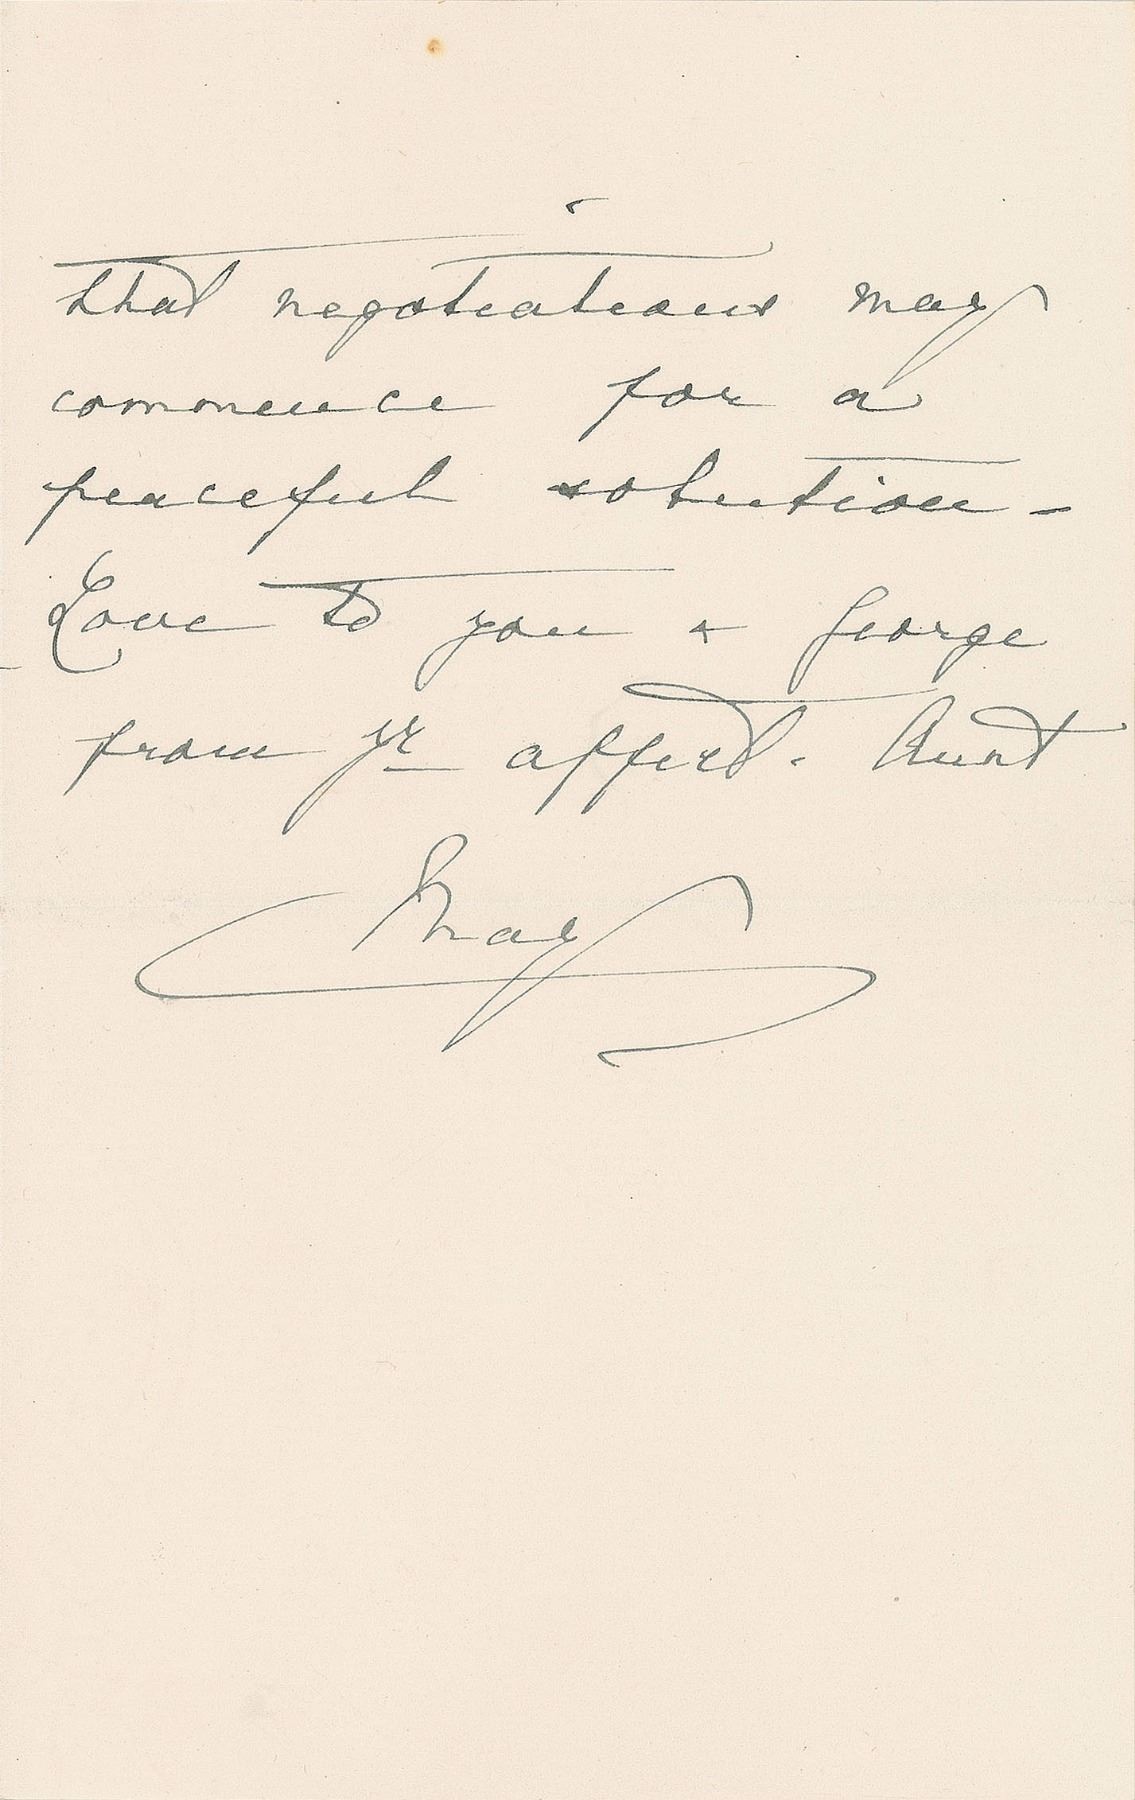 that negotiations may
commence for a
peaceful solution -
Love to you & George
from yr affect. Aunt
May